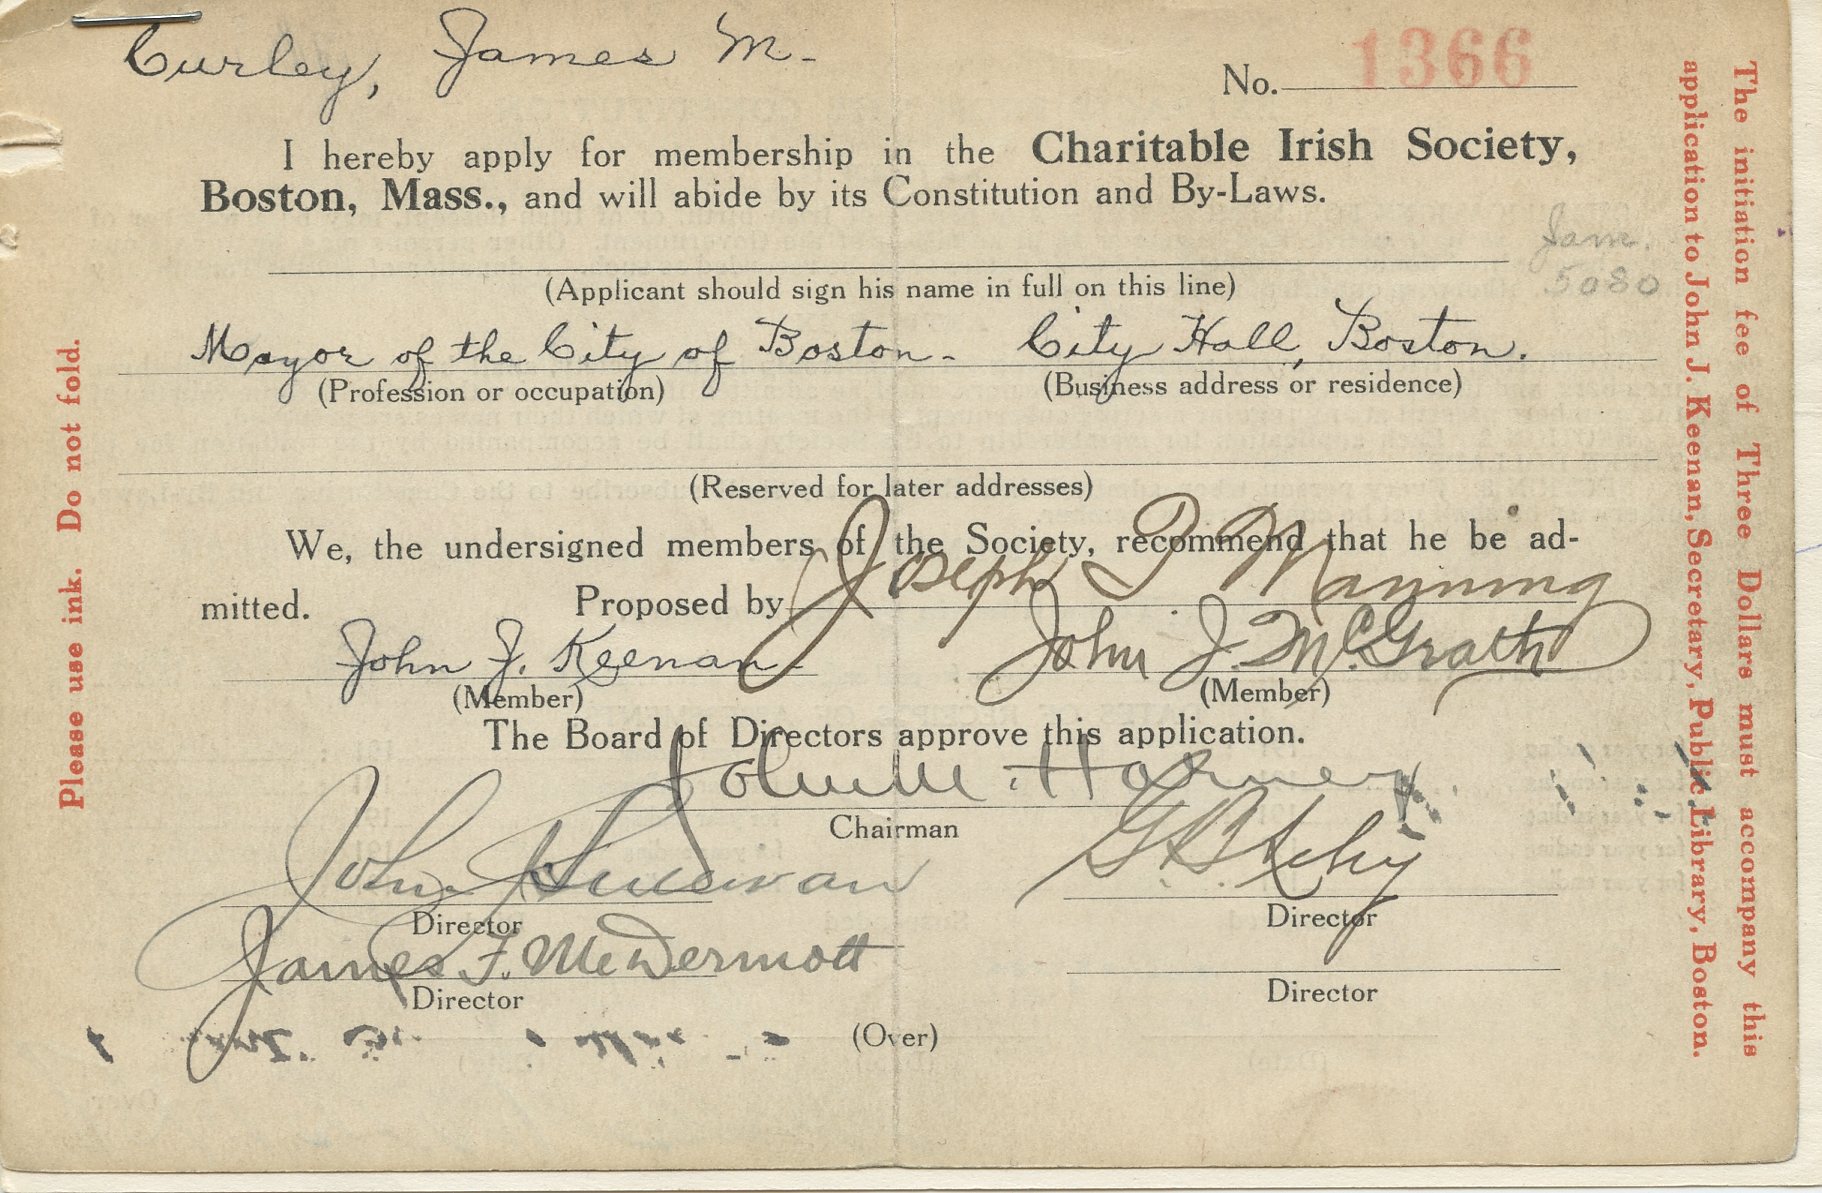 Curley, James M.
No. 1366
I hereby apply for membership in the Charitable Irish Society,
Boston, Mass., and will abide by its Constitution and By-Laws.
Jam.
5080
(Applicant should sign his name in full on this line)
Mayor of the City of Boston. City Hall, Boston.
(Profession or occupation) (Business address or residence)
(Reserved for later addresses)
We, the undersigned members of the Society, recommend that he be ad-
mitted. Proposed by Joseph P Manning
John J. Keenan. John J. McGrath
(Member) (Member)
The Board of Directors approve this application.
John M.
Chairman
John J Sullivan
Director Director
James F. McDermott
Director Director
(Over)
Please use ink. Do not fold.
The initiation fee of Three Dollars must accompany this
application to John J. Keenan, Secretary, Public Library, Boston.